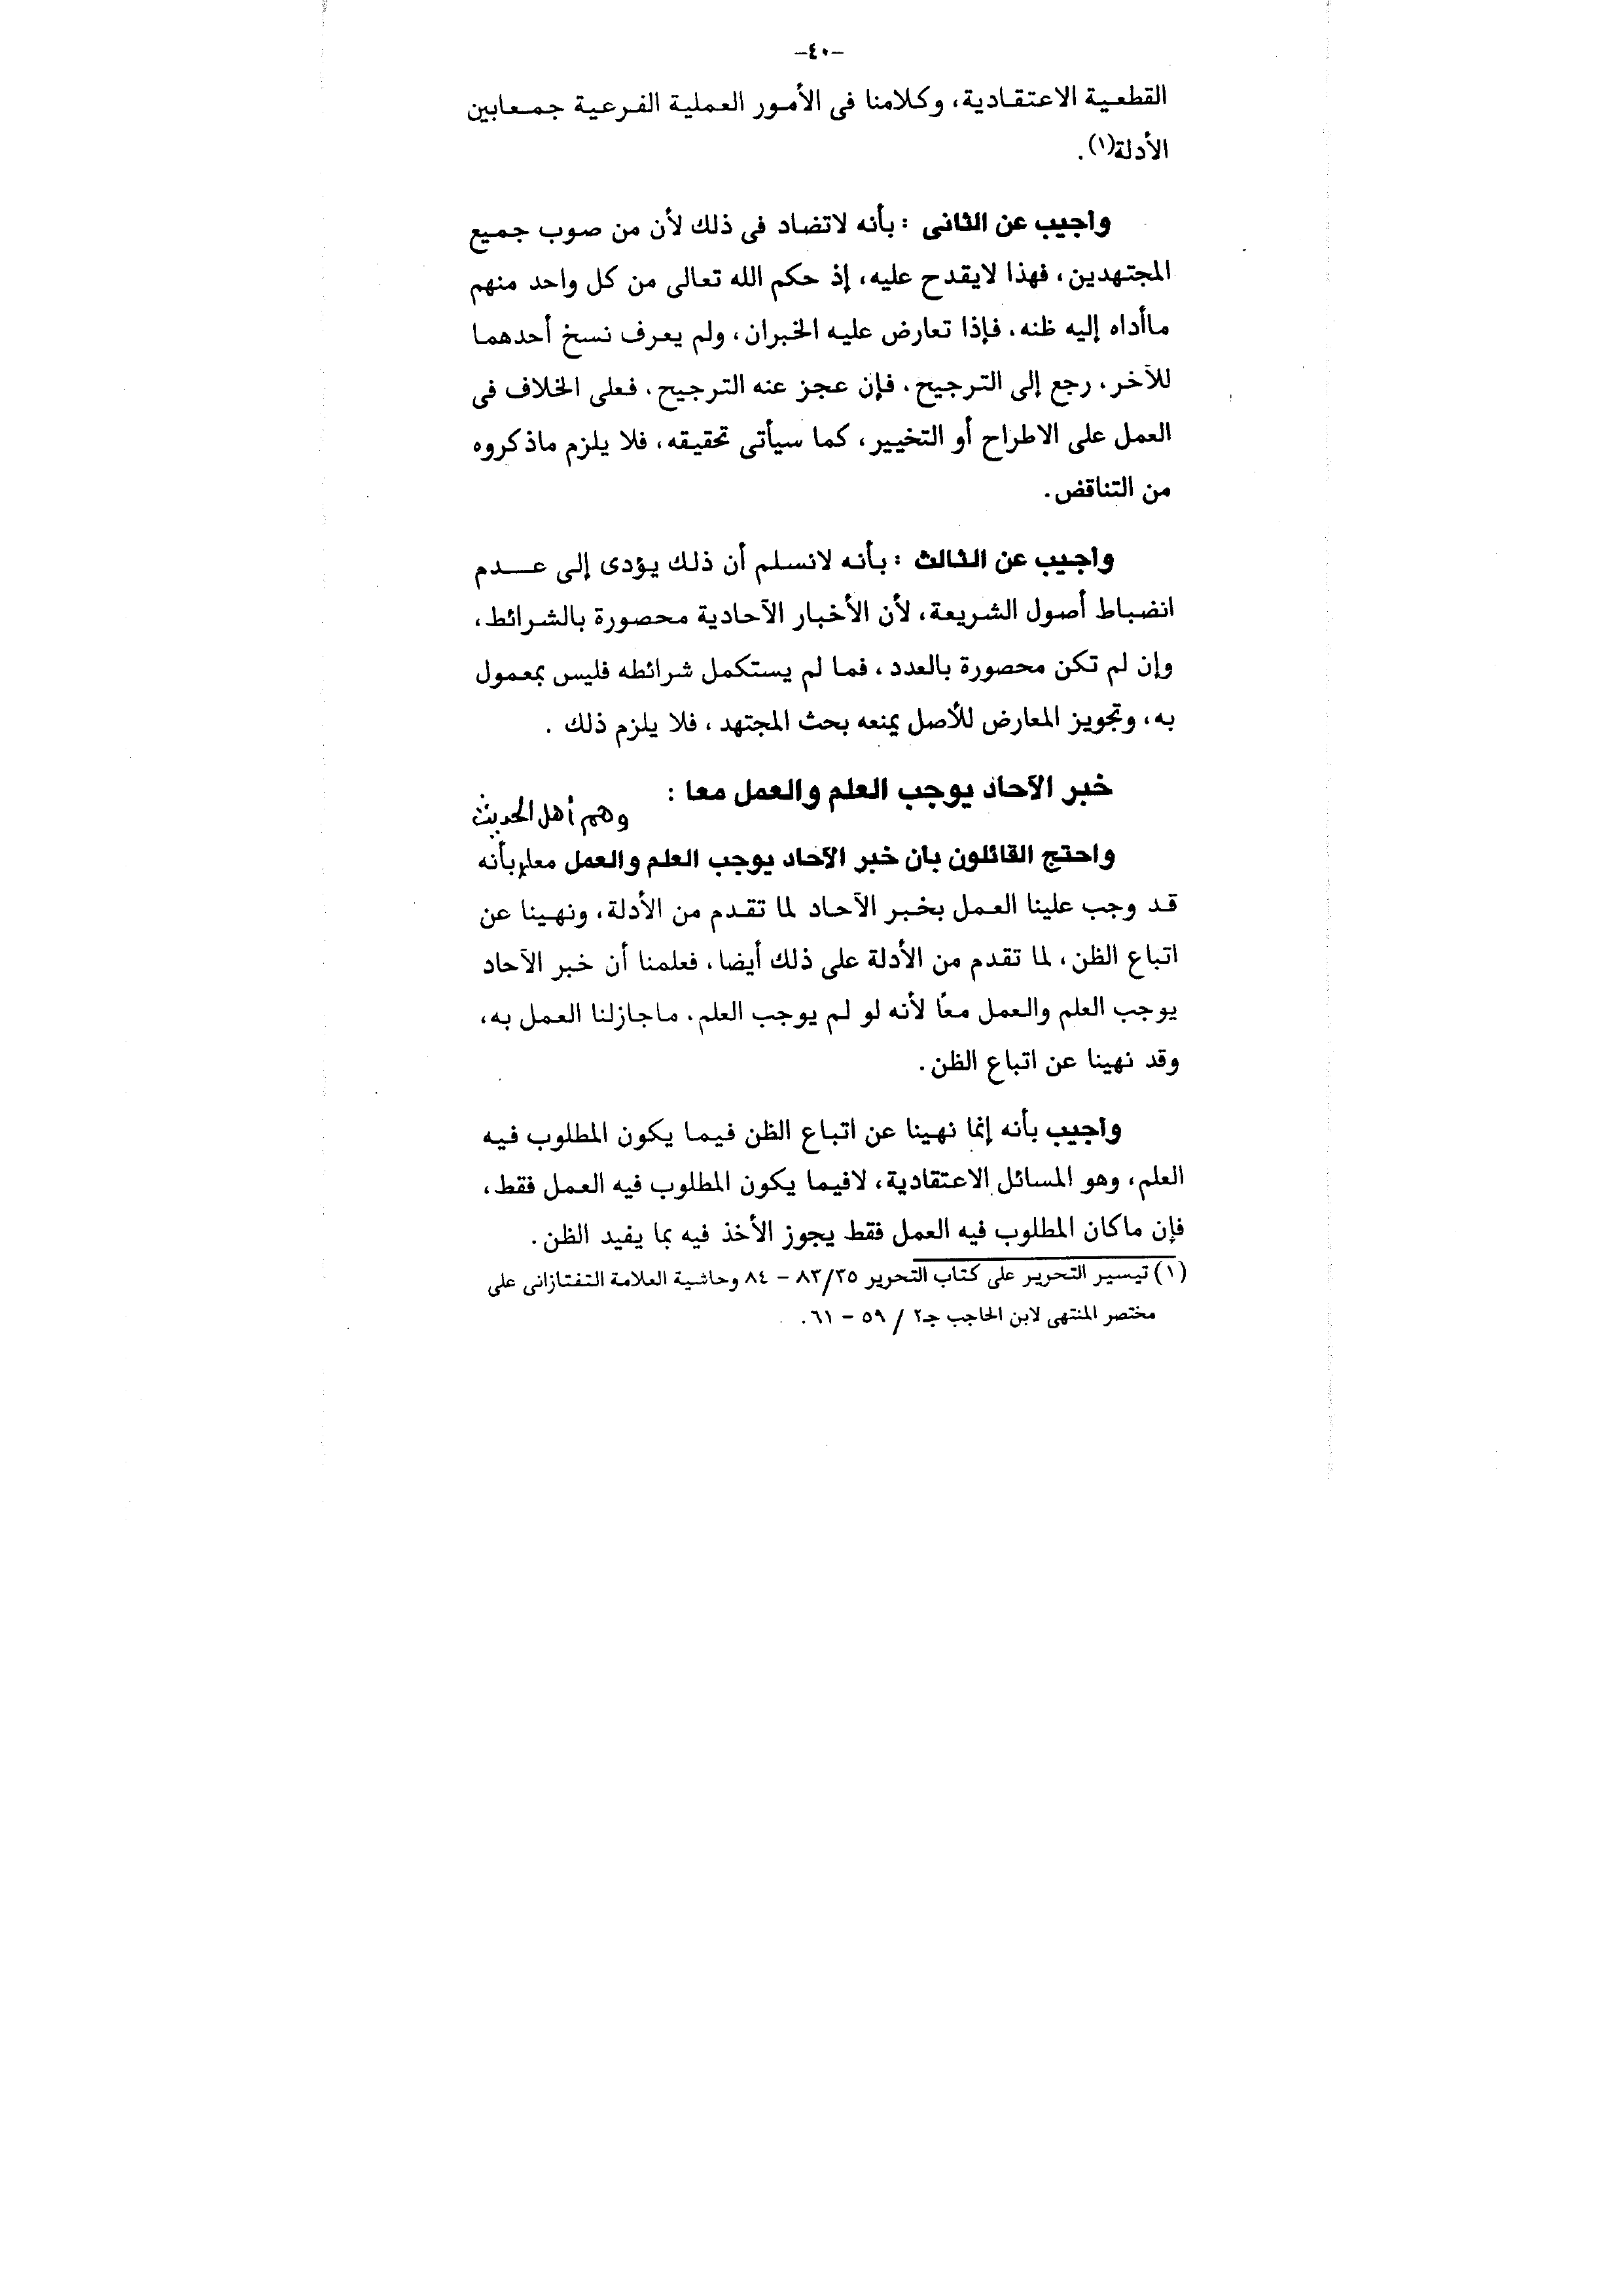 -٤٠-
القطعية الاعتقادية، وكلامنا فى الأمور العملية الفرعية جمعابين
الأدلة(١).
واجيب عن الثانى : بأنه لاتضاد فى ذلك لأن من صوب جميع
المجتهدين، فهذا لايقدح عليه، إذ حكم الله تعالى من كل واحد منهم
ماأداه إليه ظنه، فإذا تعارض عليه الخبران، ولم يعرف نسخ أحدهما
للآخر، رجع إلى الترجيح، فإن عجز عنه الترجيح، فعلى الخلاف فى
العمل على الاطراح أو التخيير، كما سيأتى تحقيقه، فلا يلزم ماذكروه
من التناقض.
واجيب عن الثالث : بأنه لانسلم أن ذلك يؤدى إلى عــدم
انضباط أصول الشريعة، لأن الأخبار الآحادية محصورة بالشرائط،
وإن لم تكن محصورة بالعدد، فما لم يستكمل شرائطه فليس بمعمول
به، وتجويز المعارض للأصل يمنعه بحث المجتهد، فلا يلزم ذلك .
خبر الآحاد يوجب العلم والعمل معا :
وهم أهل الحديث
واحتج القائلون بان خبر الآحاد يوجب العلم والعمل معا، بأنه
قد وجب علينا العمل بخبر الآحاد لما تقدم من الأدلة، ونهينا عن
اتباع الظن، لما تقدم من الأدلة على ذلك أيضا، فعلمنا أن خبر الآحاد
يوجب العلم والعمل معًا لأنه لو لم يوجب العلم، ماجازلنا العمل به،
وقد نهينا عن اتباع الظن.
واجيب بأنه إنما نهينا عن اتباع الظن فيما يكون المطلوب فيه
العلم، وهو المسائل الاعتقادية، لافيما يكون المطلوب فيه العمل فقط،
فإن ماكان المطلوب فيه العمل فقط يجوز الأخذ فيه بما يفيد الظن.
(١) تيسير التحرير على كتاب التحرير ٨٣/٣٥ - ٨٤ وحاشية العلامة التفتازانى على
مختصر المنتهى لابن الحاجب جـ٢ / ٥٩ - ٦١.